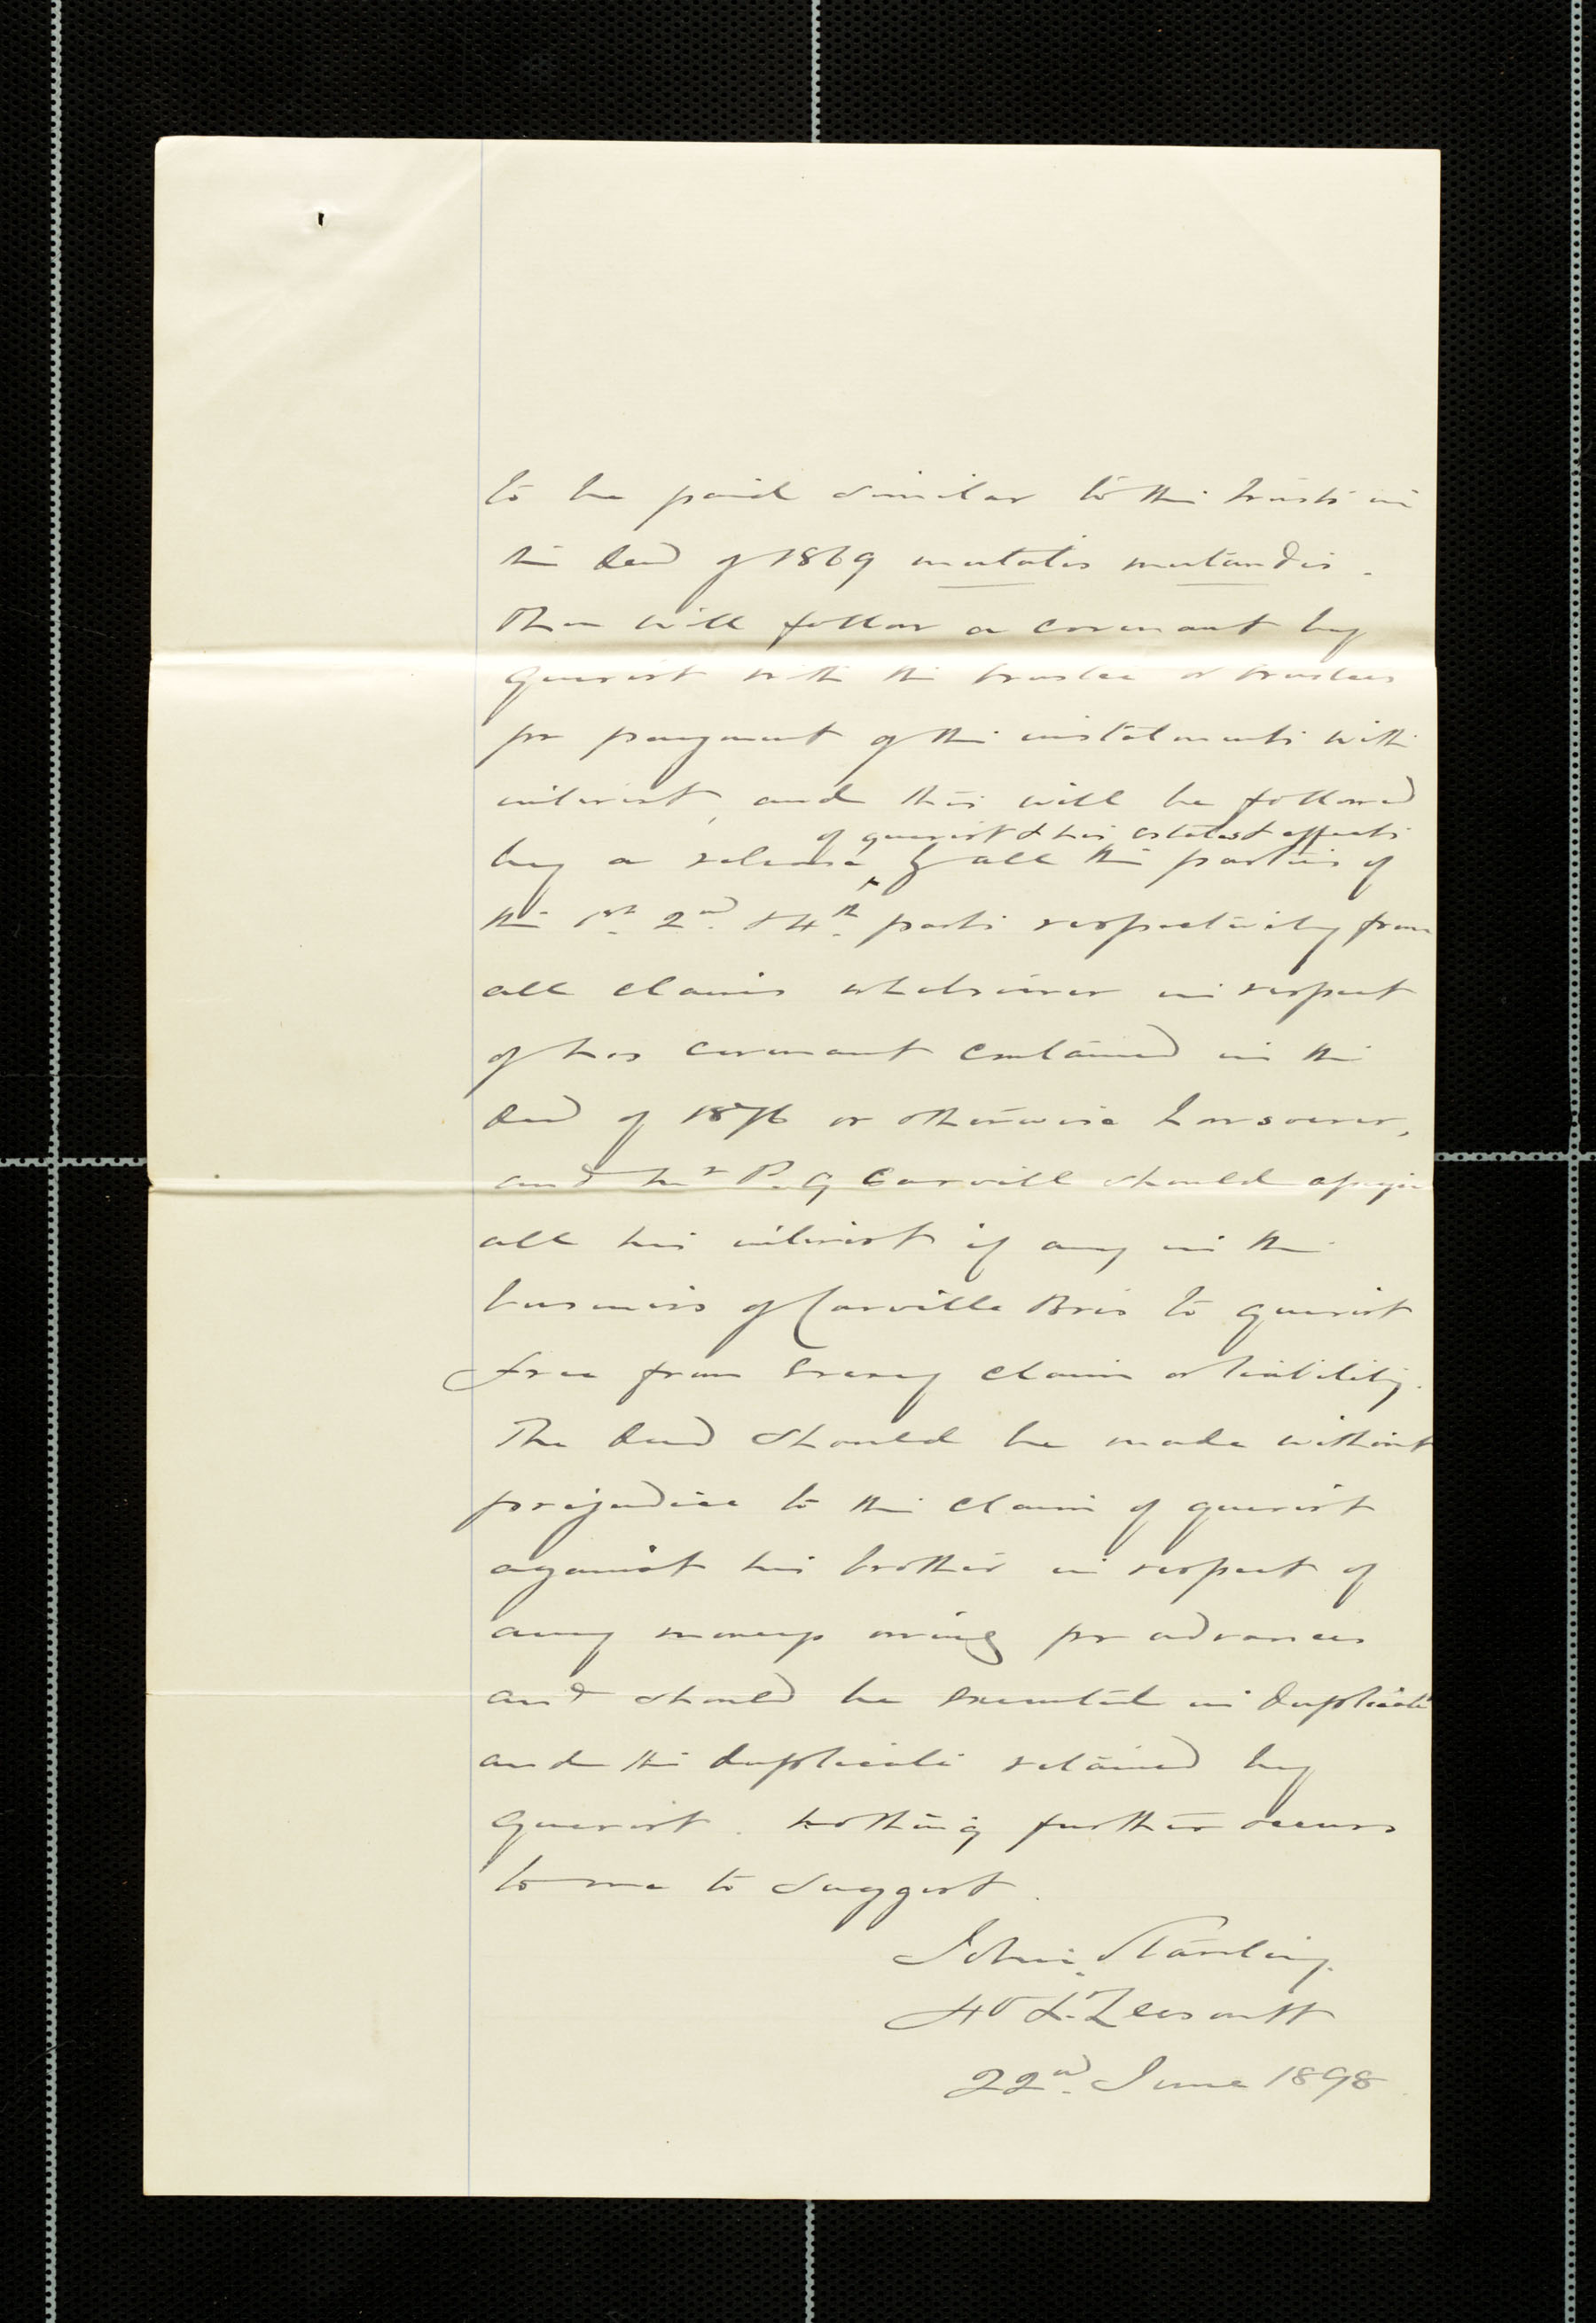 to be paid similar to the trusts in
the Deed of 1869 mutatis mutandis.
Then will follow a covenant by
querist with the trustee or trustees
for payment of the instalments with
interest, and this will be followed
of querist & his estates & effects
by a release by all the parties of
the 1st 2nd & 4th parts respectively from
all claims whatsoever in respect
of his covenant contained in the
Deed of 1876 or otherwise howsoever,
and Mr P. G Carvill should assign
all his interest if any in the
business of Carvill Bros to querist
free from every claim or liability.
The Deed should be made without
prejudice to the claim of querist
against his brother in respect of
any moneys owing for advances
and should be executed in Duplicate
and the Duplicate retained by
querist. Nothing further occurs
to me to suggest.
John
22nd June 1898